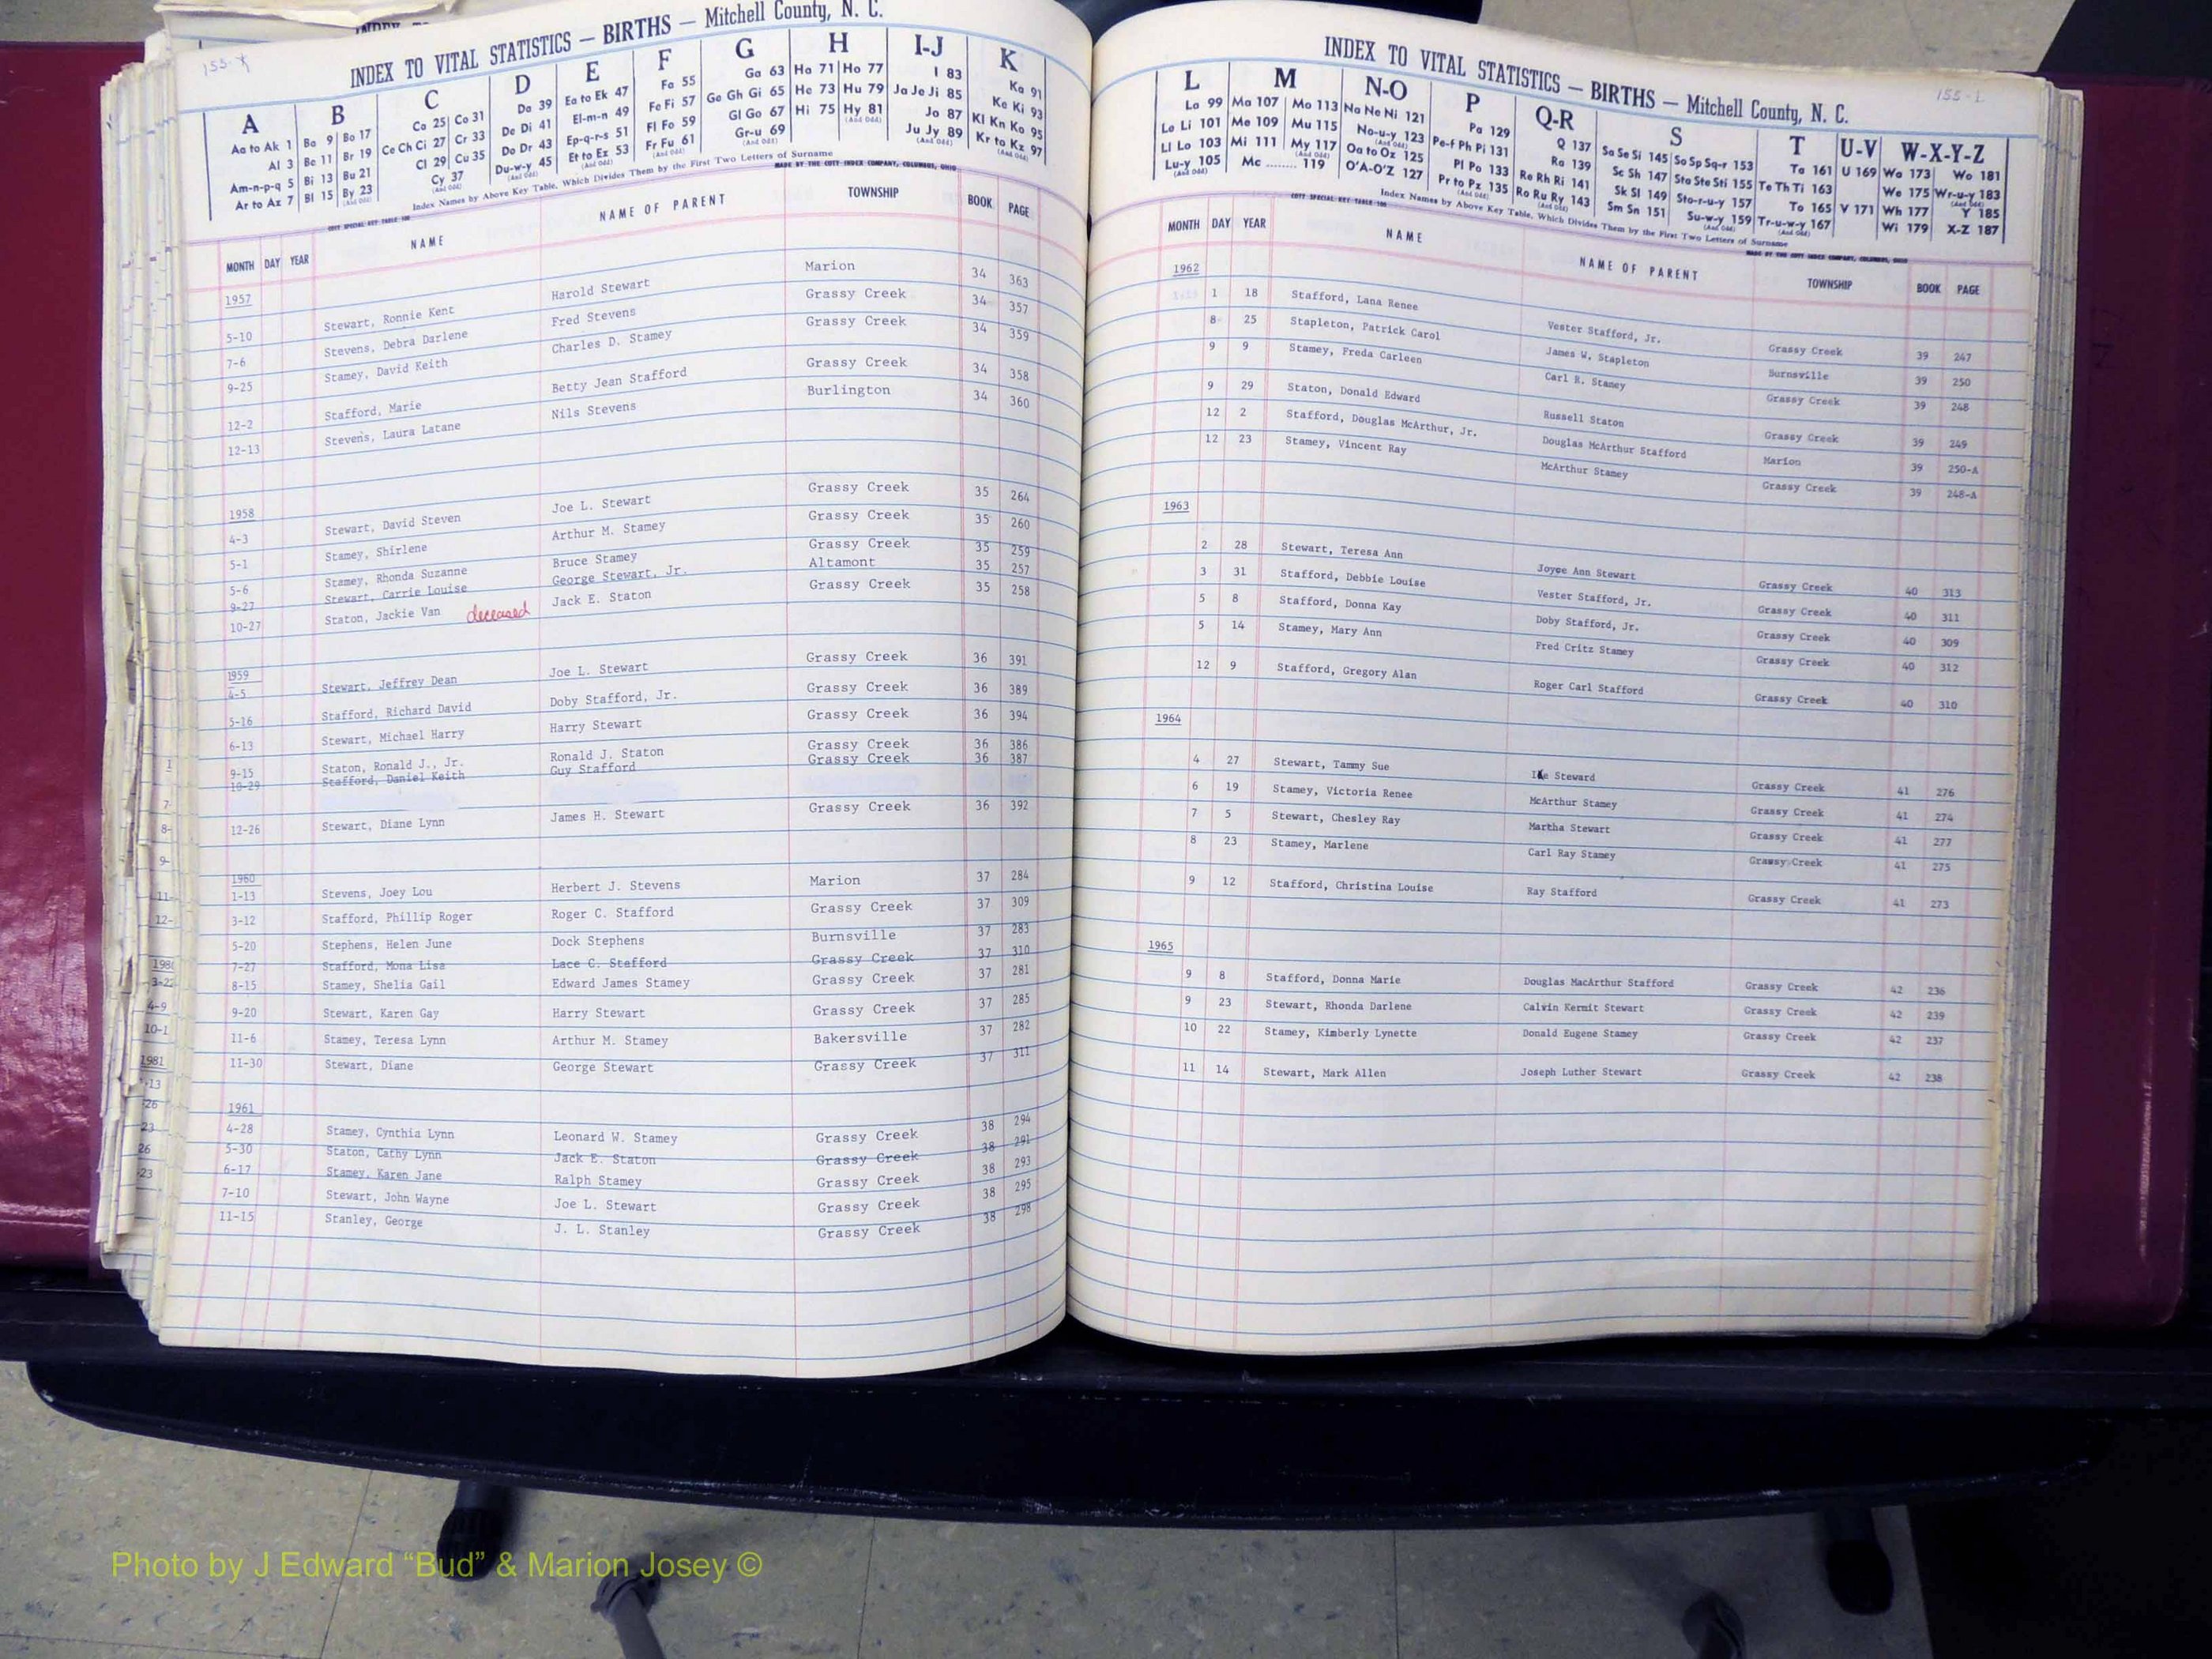 155-K
INDEX TO VITAL STATISTICS — BIRTHS — Mitchell County, N. C.
A B C D E F G H I-J K
Aa to Ak 1 Ba 9 Bo 17 Ca 25 Co 31 Da 39 Ea to Ek 47 Fa 55 Ga 63 Ha 71 Ho 77 I 83 Ka 91
Al 3 Be 11 Br 19 Ce Ch Ci 27 Cr 33 De Di 41 El-m-n 49 Fe Fi 57 Ge Gh Gi 65 He 73 Hu 79 Ja Je Ji 85 Ke Ki 93
Am-n-p-q 5 Bi 13 Bu 21 Cl 29 Cu 35 Do Dr 43 Ep-q-r-s 51 Fl Fo 59 Gl Go 67 Hi 75 Hy 81 (And Odd) Jo 87 Kl Kn Ko 95
Ar to Az 7 Bl 15 By 23 (And Odd) Cy 37 (And Odd) Du-w-y 45 (And Odd) Et to Ez 53 (And Odd) Fr Fu 61 (And Odd) Gr-u 69 (And Odd) Ju Jy 89 (And Odd) Kr to Kz 97 (And Odd)
COTT SPECIAL KEY TABLE 100 Index Names by Above Key Table, Which Divides Them by the First Two Letters of Surname MADE BY THE COTT INDEX COMPANY, COLUMBUS, OHIO
MONTH DAY YEAR NAME NAME OF PARENT TOWNSHIP BOOK PAGE
1957
5-10 Stewart, Ronnie Kent Harold Stewart Marion 34 363
7-6 Stevens, Debra Darlene Fred Stevens Grassy Creek 34 357
9-25 Stamey, David Keith Charles D. Stamey Grassy Creek 34 359
12-2 Stafford, Marie Betty Jean Stafford Grassy Creek 34 358
12-13 Stevens, Laura Latane Nils Stevens Burlington 34 360
1958
4-3 Stewart, David Steven Joe L. Stewart Grassy Creek 35 264
5-1 Stamey, Shirlene Arthur M. Stamey Grassy Creek 35 260
5-6 Stamey, Rhonda Suzanne Bruce Stamey Grassy Creek 35 259
9-27 Stewart, Carrie Louise George Stewart, Jr. Altamont 35 257
10-27 Staton, Jackie Van deceased Jack E. Staton Grassy Creek 35 258
1959
4-5 Stewart, Jeffrey Dean Joe L. Stewart Grassy Creek 36 391
5-16 Stafford, Richard David Doby Stafford, Jr. Grassy Creek 36 389
6-13 Stewart, Michael Harry Harry Stewart Grassy Creek 36 394
9-15 Staton, Ronald J., Jr. Ronald J. Staton Grassy Creek 36 386
10-29 Stafford, Daniel Keith Guy Stafford Grassy Creek 36 387
12-26 Stewart, Diane Lynn James H. Stewart Grassy Creek 36 392
1960
1-13 Stevens, Joey Lou Herbert J. Stevens Marion 37 284
3-12 Stafford, Phillip Roger Roger C. Stafford Grassy Creek 37 309
5-20 Stephens, Helen June Dock Stephens Burnsville 37 283
7-27 Stafford, Mona Lisa Lace C. Stafford Grassy Creek 37 310
8-15 Stamey, Shelia Gail Edward James Stamey Grassy Creek 37 281
9-20 Stewart, Karen Gay Harry Stewart Grassy Creek 37 285
11-6 Stamey, Teresa Lynn Arthur M. Stamey Bakersville 37 282
11-30 Stewart, Diane George Stewart Grassy Creek 37 311
1961
4-28 Stamey, Cynthia Lynn Leonard W. Stamey Grassy Creek 38 294
5-30 Staton, Cathy Lynn Jack E. Staton Grassy Creek 38 291
6-17 Stamey, Karen Jane Ralph Stamey Grassy Creek 38 293
7-10 Stewart, John Wayne Joe L. Stewart Grassy Creek 38 295
11-15 Stanley, George J. L. Stanley Grassy Creek 38 298
155-L
INDEX TO VITAL STATISTICS — BIRTHS — Mitchell County, N. C.
L M N-O P Q-R S T U-V W-X-Y-Z
La 99 Ma 107 Mo 113 Na Ne Ni 121 Pa 129 Q 137 Sa Se Si 145 So Sp Sq-r 153 Ta 161 U 169 Wa 173 Wo 181
Le Li 101 Me 109 Mu 115 No-u-y 123 (And Odd) Pe-f Ph Pi 131 Ra 139 Sc Sh 147 Sta Ste Sti 155 Te Th Ti 163 We 175 Wr-u-y 183 (And Odd)
Ll Lo 103 Mi 111 My 117 (And Odd) Oa to Oz 125 Pl Po 133 Re Rh Ri 141 Sk Sl 149 Sto-r-u-y 157 To 165 V 171 Wh 177 Y 185
Lu-y 105 (And Odd) Mc ........ 119 O'A-O'Z 127 Pr to Pz 135 (And Odd) Ro Ru Ry 143 (And Odd) Sm Sn 151 Su-w-y 159 (And Odd) Tr-u-w-y 167 (And Odd) Wi 179 X-Z 187
COTT SPECIAL KEY TABLE 100 Index Names by Above Key Table, Which Divides Them by the First Two Letters of Surname MADE BY THE COTT INDEX COMPANY, COLUMBUS, OHIO
MONTH DAY YEAR NAME NAME OF PARENT TOWNSHIP BOOK PAGE
1962
1 18 Stafford, Lana Renee Vester Stafford, Jr. Grassy Creek 39 247
8 25 Stapleton, Patrick Carol James W. Stapleton Burnsville 39 250
9 9 Stamey, Freda Carleen Carl R. Stamey Grassy Creek 39 248
9 29 Staton, Donald Edward Russell Staton Grassy Creek 39 249
12 2 Stafford, Douglas McArthur, Jr. Douglas McArthur Stafford Marion 39 250-A
12 23 Stamey, Vincent Ray McArthur Stamey Grassy Creek 39 248-A
1963
2 28 Stewart, Teresa Ann Joyce Ann Stewart Grassy Creek 40 313
3 31 Stafford, Debbie Louise Vester Stafford, Jr. Grassy Creek 40 311
5 8 Stafford, Donna Kay Doby Stafford, Jr. Grassy Creek 40 309
5 14 Stamey, Mary Ann Fred Critz Stamey Grassy Creek 40 312
12 9 Stafford, Gregory Alan Roger Carl Stafford Grassy Creek 40 310
1964
4 27 Stewart, Tammy Sue Steward Grassy Creek 41 276
6 19 Stamey, Victoria Renee McArthur Stamey Grassy Creek 41 274
7 5 Stewart, Chesley Ray Martha Stewart Grassy Creek 41 277
8 23 Stamey, Marlene Carl Ray Stamey Grassy Creek 41 275
9 12 Stafford, Christina Louise Ray Stafford Grassy Creek 41 273
1965
9 8 Stafford, Donna Marie Douglas MacArthur Stafford Grassy Creek 42 236
9 23 Stewart, Rhonda Darlene Calvin Kermit Stewart Grassy Creek 42 239
10 22 Stamey, Kimberly Lynette Donald Eugene Stamey Grassy Creek 42 237
11 14 Stewart, Mark Allen Joseph Luther Stewart Grassy Creek 42 238
Photo by J Edward “Bud” & Marion Josey ©